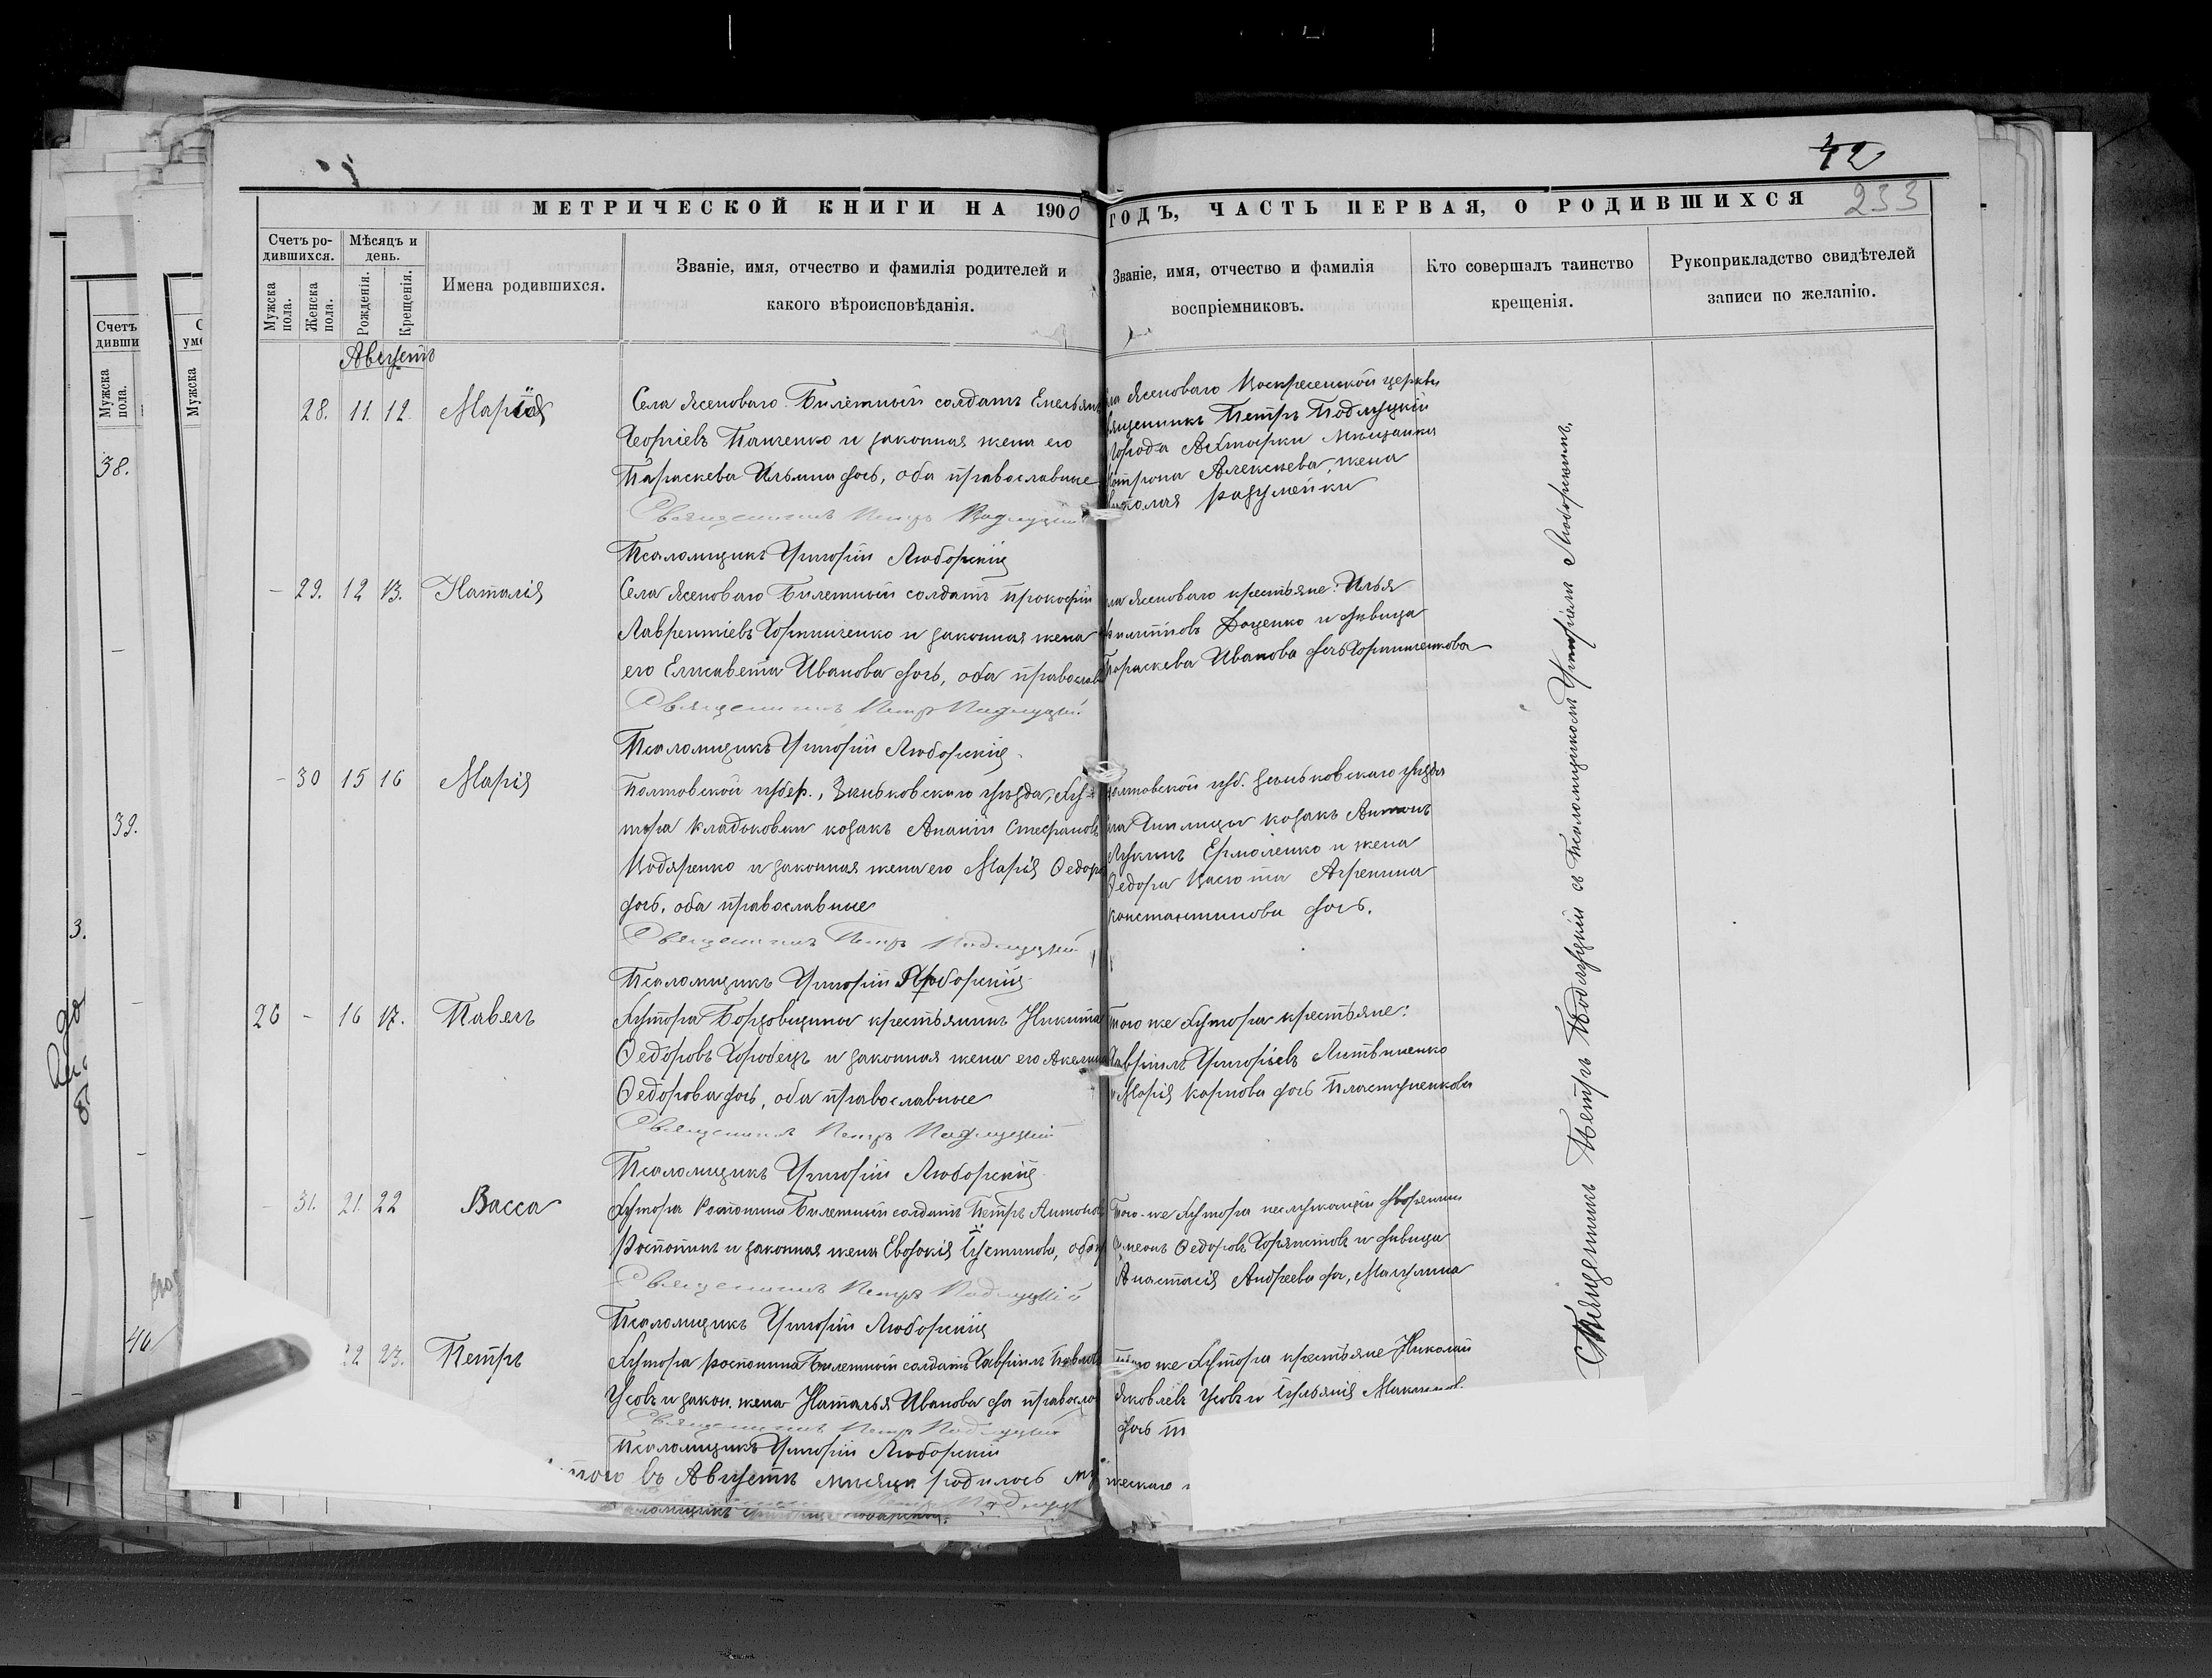 42
233
МЕТРИЧЕСКОЙ КНИГИ НА 1900
ГОДЪ, ЧАСТЬ ПЕРВАЯ, О РОДИВШИХСЯ
Счетъ ро-
дившихся.
Мѣсяцъ и
день.
Мужска
пола.
Женска
пола.
Рожденія.
Крещенія.
Имена родившихся.
Званіе, имя, отчество и фамилія родителей и
какого вѣроисповѣданія.
Званіе, имя, отчество и фамилія
воспріемниковъ.
Кто совершалъ таинство
крещенія.
Рукоприкладство свидѣтелей
записи по желанію.
Августъ
28. 11. 12. Марія
Села Ясеноваго Билетный солдатъ Емельянъ
Георгіевъ Панченко и законная жена его
Параскева Ильина дочь, оба православные
Священникъ Петръ Подлуцкій
Псаломщикъ Григорій Любарскій
Ясеноваго Воскресенской церкви
священникъ Петръ Подлуцкій
Города Ахтырки мѣщанка
Алексѣева, жена
Николая
- 29. 12 13. Наталія
Села Ясеноваго Билетный солдатъ Прокофій
Лаврентіевъ Горпинченко и законная жена
его Елисавета Иванова дочь, оба православ
Священникъ Петръ Подлуцкій
Псаломщикъ Григорій Любарскій
Ясеноваго крестьяне: Илья
Филипповъ Доценко и дѣвица
Параскева Иванова дочь Горпинченкова
- 30 15 16 Марія
Полтовской губер., Зиньковскаго уѣзда, Ху-
тора Кладьковки козакъ Ананій Стефановъ
и законная жена его Марія Ѳедоро
дочь, оба православные
Священникъ Петръ Подлуцкій
Псаломщикъ Григорій Любарскій
Полтовской губ. Зеньковскаго уѣзда
козакъ Антонъ
Лукинъ Ермоленко и жена
Ѳедора Агрепина
Константинова дочь.
26 - 16 17. Павелъ
Хутора Борзовщина крестьянинъ Никита
Ѳедоровъ Горобецъ и законная жена его Акелина
Ѳедорова дочь, оба православные
Священникъ Петръ Подлуцкій
Псаломщикъ Григорій Любарскій
Того же Хутора крестьяне:
Гавріилъ Григорьевъ Литвиненко
и Марія Карпова дочь Пластуненкова
- 31. 21. 22 Васса
Хутора Роспопина Билетный солдатъ Петръ Антоновъ
Роспопинъ и законная жена Евдокія Іустинова, оба
Священникъ Петръ Подлуцкій
Псаломщикъ Григорій Любарскій
Того-же Хутора неслужащій дворянинъ
Симеонъ Ѳедоровъ и дѣвица
Анастасія Андреева
22 23. Петръ
Хутора Роспопина Билетный солдатъ Гавріилъ Павловъ
Усовъ и закон. жена Наталья Иванова православ
Священникъ Петръ Подлуцкій
Псаломщикъ Григорій Любарскій
Того же Хутора крестьяне Николай
Яковлевъ Усовъ и Іульянія
дочь
въ Августѣ мѣсяцѣ родилось му
жескаго
Священникъ Петръ Подлуцкій съ Псаломщикомъ Григоріемъ Любарскимъ.
Счетъ
дивши
Мужска
пола.
38.
39.
3.
40
Мужска